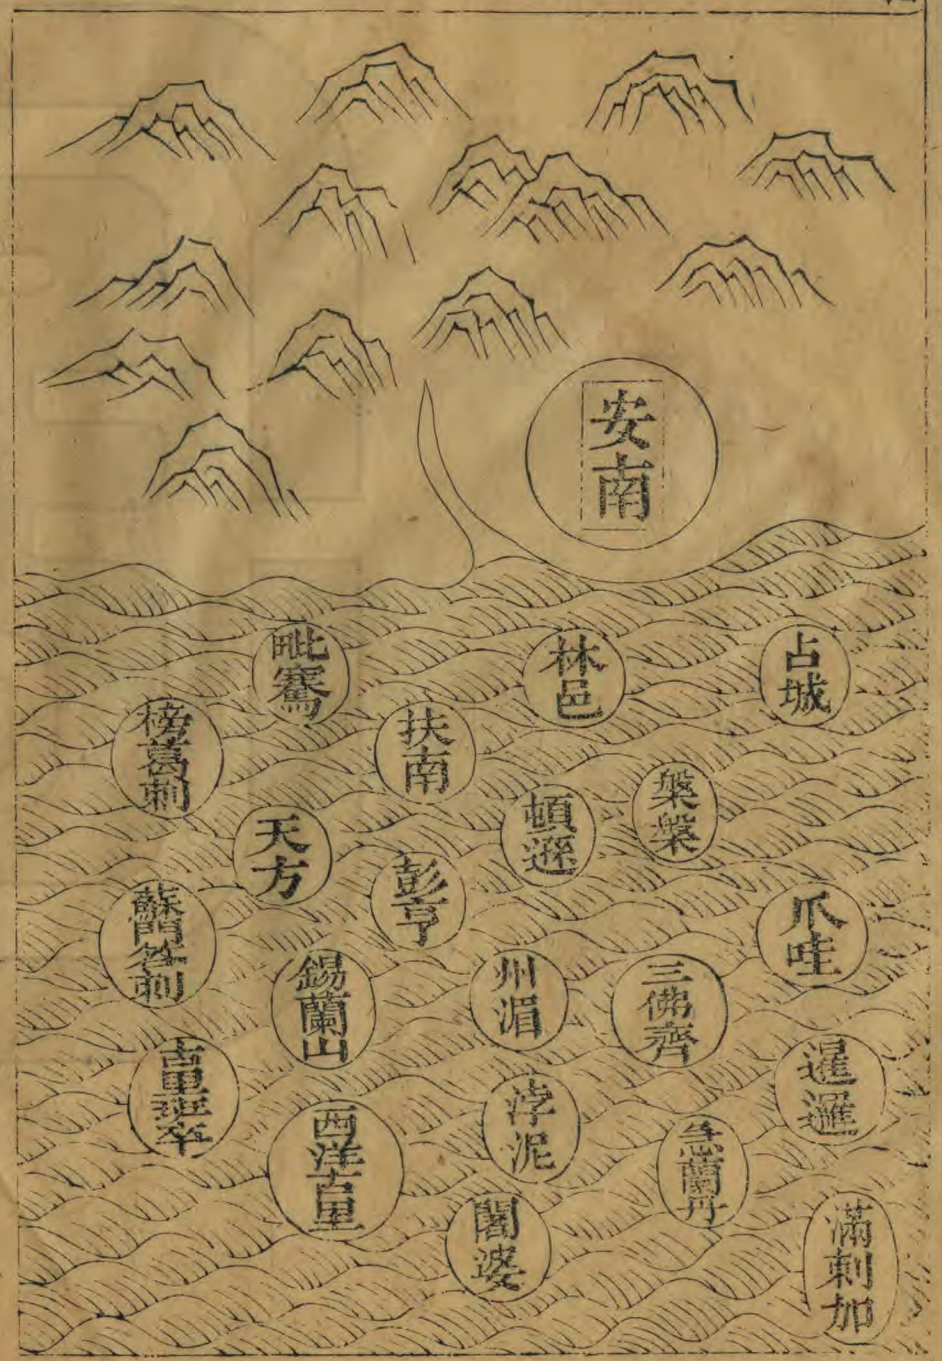 安南
占城
林邑
毗騫
扶南
榜葛剌
槃槃
頓遜
天方
彭亨
爪哇
蘇門答剌
三佛齊
州湄
錫蘭山
暹邏
吉里班卒
浡泥
急蘭丹
西洋古里
闍婆
滿剌加